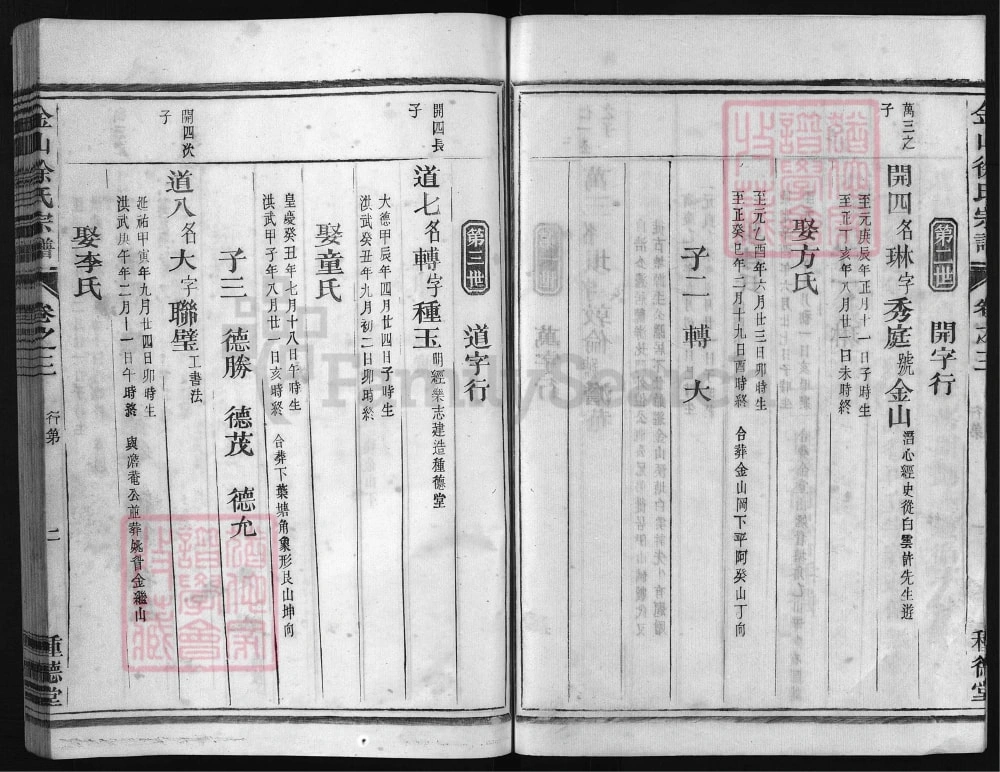 金山徐氏宗譜
卷之三
行第
種德堂
第二世 開字行
萬三之子
開四名琳字秀庭號金山潛心經史從白雲許先生遊
至元庚辰年正月十一日子時生
至正丁亥年八月廿一日未時終
娶方氏
至元乙酉年六月廿三日卯時生
至正癸巳年二月十九日酉時終 合葬金山岡下平阿癸山丁向
子二 轉 大
第三世 道字行
開四長子
道七名轉字種玉明經樂志建造種德堂
大德甲辰年四月廿四日子時生
洪武癸丑年九月初二日卯時終
娶童氏
皇慶癸丑年七月十八日午時生
洪武甲子年八月一日亥時終 合葬下葉塘角象形艮山坤向
子三 德勝 德茂 德允
開四次子
道八名大字聯璧工書法
延祐甲寅年九月廿四日卯時生
洪武庚午年二月一日午時終 與澹菴公並葬姚胥金繼山
娶李氏
金山徐氏宗譜
卷之三
行第
二
種德堂
FamilySearch